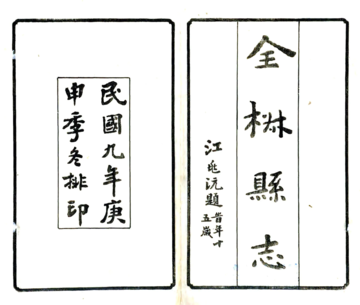 全椒縣志
江兆沅題旹年十
五歲
民國九年庚
申季冬排印